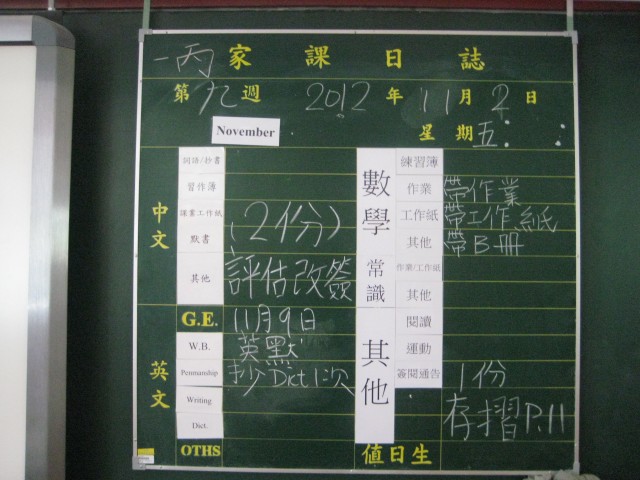 一丙 家課日誌
第九週 2012年11月2日
November
星期五
中文
詞語/抄書
習作簿
課業工作紙
默書 (2份)
其他 評估改簽
英文
G.E. 11月9日
W.B. 英默
Penmanship 抄Dict 1次
Writing
Dict.
OTHS
數學
練習簿
作業 帶作業
工作紙 帶工作紙
其他 帶B冊
常識
作業/工作紙
其他
其他
閱讀
運動
簽閱通告 1份
存摺P.11
值日生